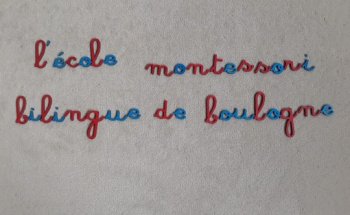 l'école montessori
bilingue de boulogne